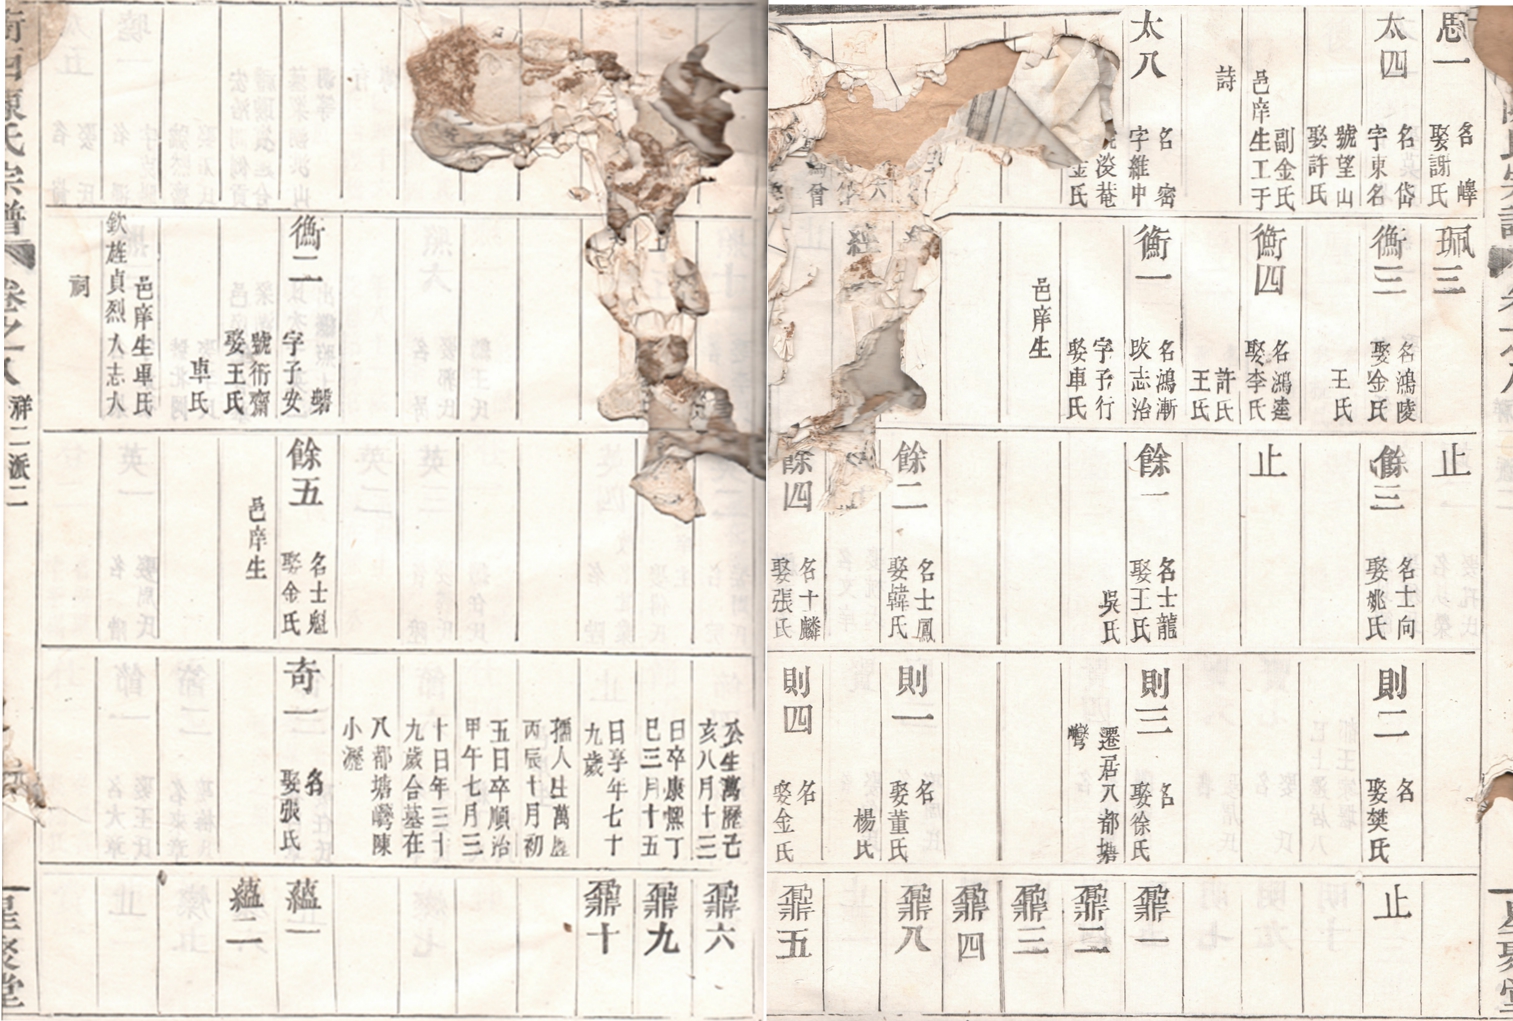 思一
名嶧
娶謝氏
太四
名岱
字東名
號望山
娶許氏
副金氏
邑庠生工于
詩
太八
名密
字維中
淩菴
金氏
珮三
衡三
名鴻陵
娶金氏
王氏
衡四
名鴻逵
娶李氏
許氏
王氏
衡一
名鴻漸
改志治
字予行
娶車氏
邑庠生
經
止
餘三
名士向
娶姚氏
止
餘一
名士龍
娶王氏
吳氏
餘二
名士鳳
娶韓氏
餘四
名士麟
娶張氏
則二
名
娶樊氏
則三
名
娶徐氏
遷居八都塘
灣
則一
名
娶董氏
楊氏
則四
名
娶金氏
止
鼐一
鼐二
鼐三
鼐四
鼐八
鼐五
星聚堂
衡二
名磐
字子安
號衍齋
娶王氏
車氏
邑庠生車氏
欽旌貞烈入志入
祠
餘五
名士魁
娶金氏
邑庠生
公生萬歷己
亥八月十三
日卒康熙丁
巳三月十五
日享年七十
九歲
孺人生萬歷
丙辰十月初
五日卒順治
甲午七月三
十日年三十
九歲合墓在
八都塘灣陳
小瀝
奇一
名
娶張氏
鼐六
鼐九
鼐十
蘊一
蘊二
陳氏宗譜
卷之一八
祥二派二
星聚堂